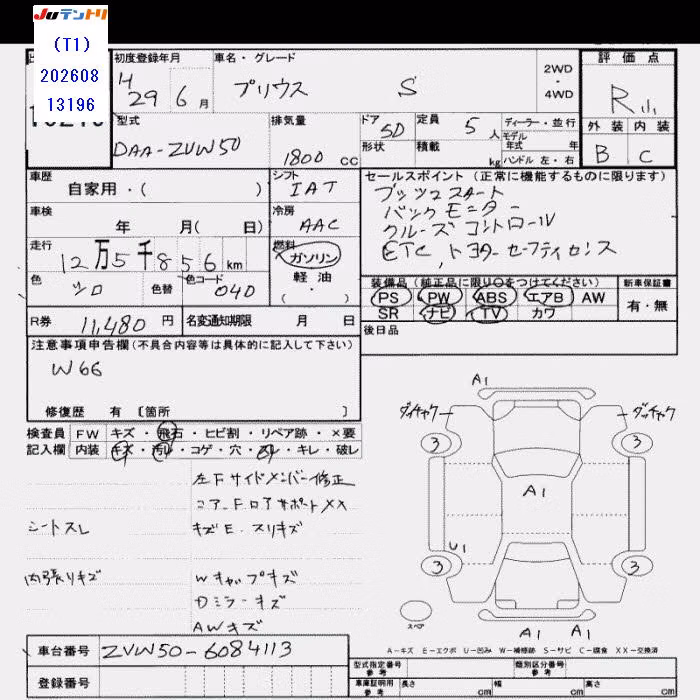 JUテントリ
(T1)
202608
13196
初度登録年月
車名・グレード
評価点
H
29 6 月
プリウス S
2WD
・
4WD
R
型式
排気量
ドア
定員
ディーラー・並行
外装 内装
DAA-ZVW50
1800 cc
5D
5 人
モデル
年式 年
形状
積載
kg
ハンドル 左・右
B C
車歴
シフト
セールスポイント(正常に機能するものに限ります)
自家用・( )
IAT
プッシュスタート
車検
冷房
バックモニター
年 月( 日)
AAC
クルーズコントロール
走行
燃料
ETC、トヨタセーフティセンス
12万5千856km
ガソリン
色
色替
色コード
軽油
シロ
040
( ・ )
装備品(純正品に限り○をつけてください)
新車保証書
PS PW ABS エアB AW
有・無
SR ナビ TV カワ
R券 11,480 円
名変通知期限 月 日
後日品
注意事項申告欄(不具合内容等は具体的に記入して下さい)
W66
修復歴 有 〔箇所 〕
検査員 FW キズ・飛石・ヒビ割・リペア跡・×要
記入欄 内装 キズ・汚レ・コゲ・穴・スレ・キレ・破レ
左Fサイドメンバー修正
コアF.ロアサポートXX
シートスレ
キズE.スリキズ
内張りキズ
Wキャップキズ
Dミラーキズ
AWキズ
A1
ダッチャク
ダッチャク
3
3
A1
U1
3
3
スペア
A1 A1
A-キズ E-エクボ U-凹み W-補修跡 S-サビ C-腐食 XX-交換済
車台番号 ZVW50-6084113
型式指定番号
参考
類別区分番号
参考
登録番号
車庫証明用
参考
長さ cm
幅 cm
高さ cm